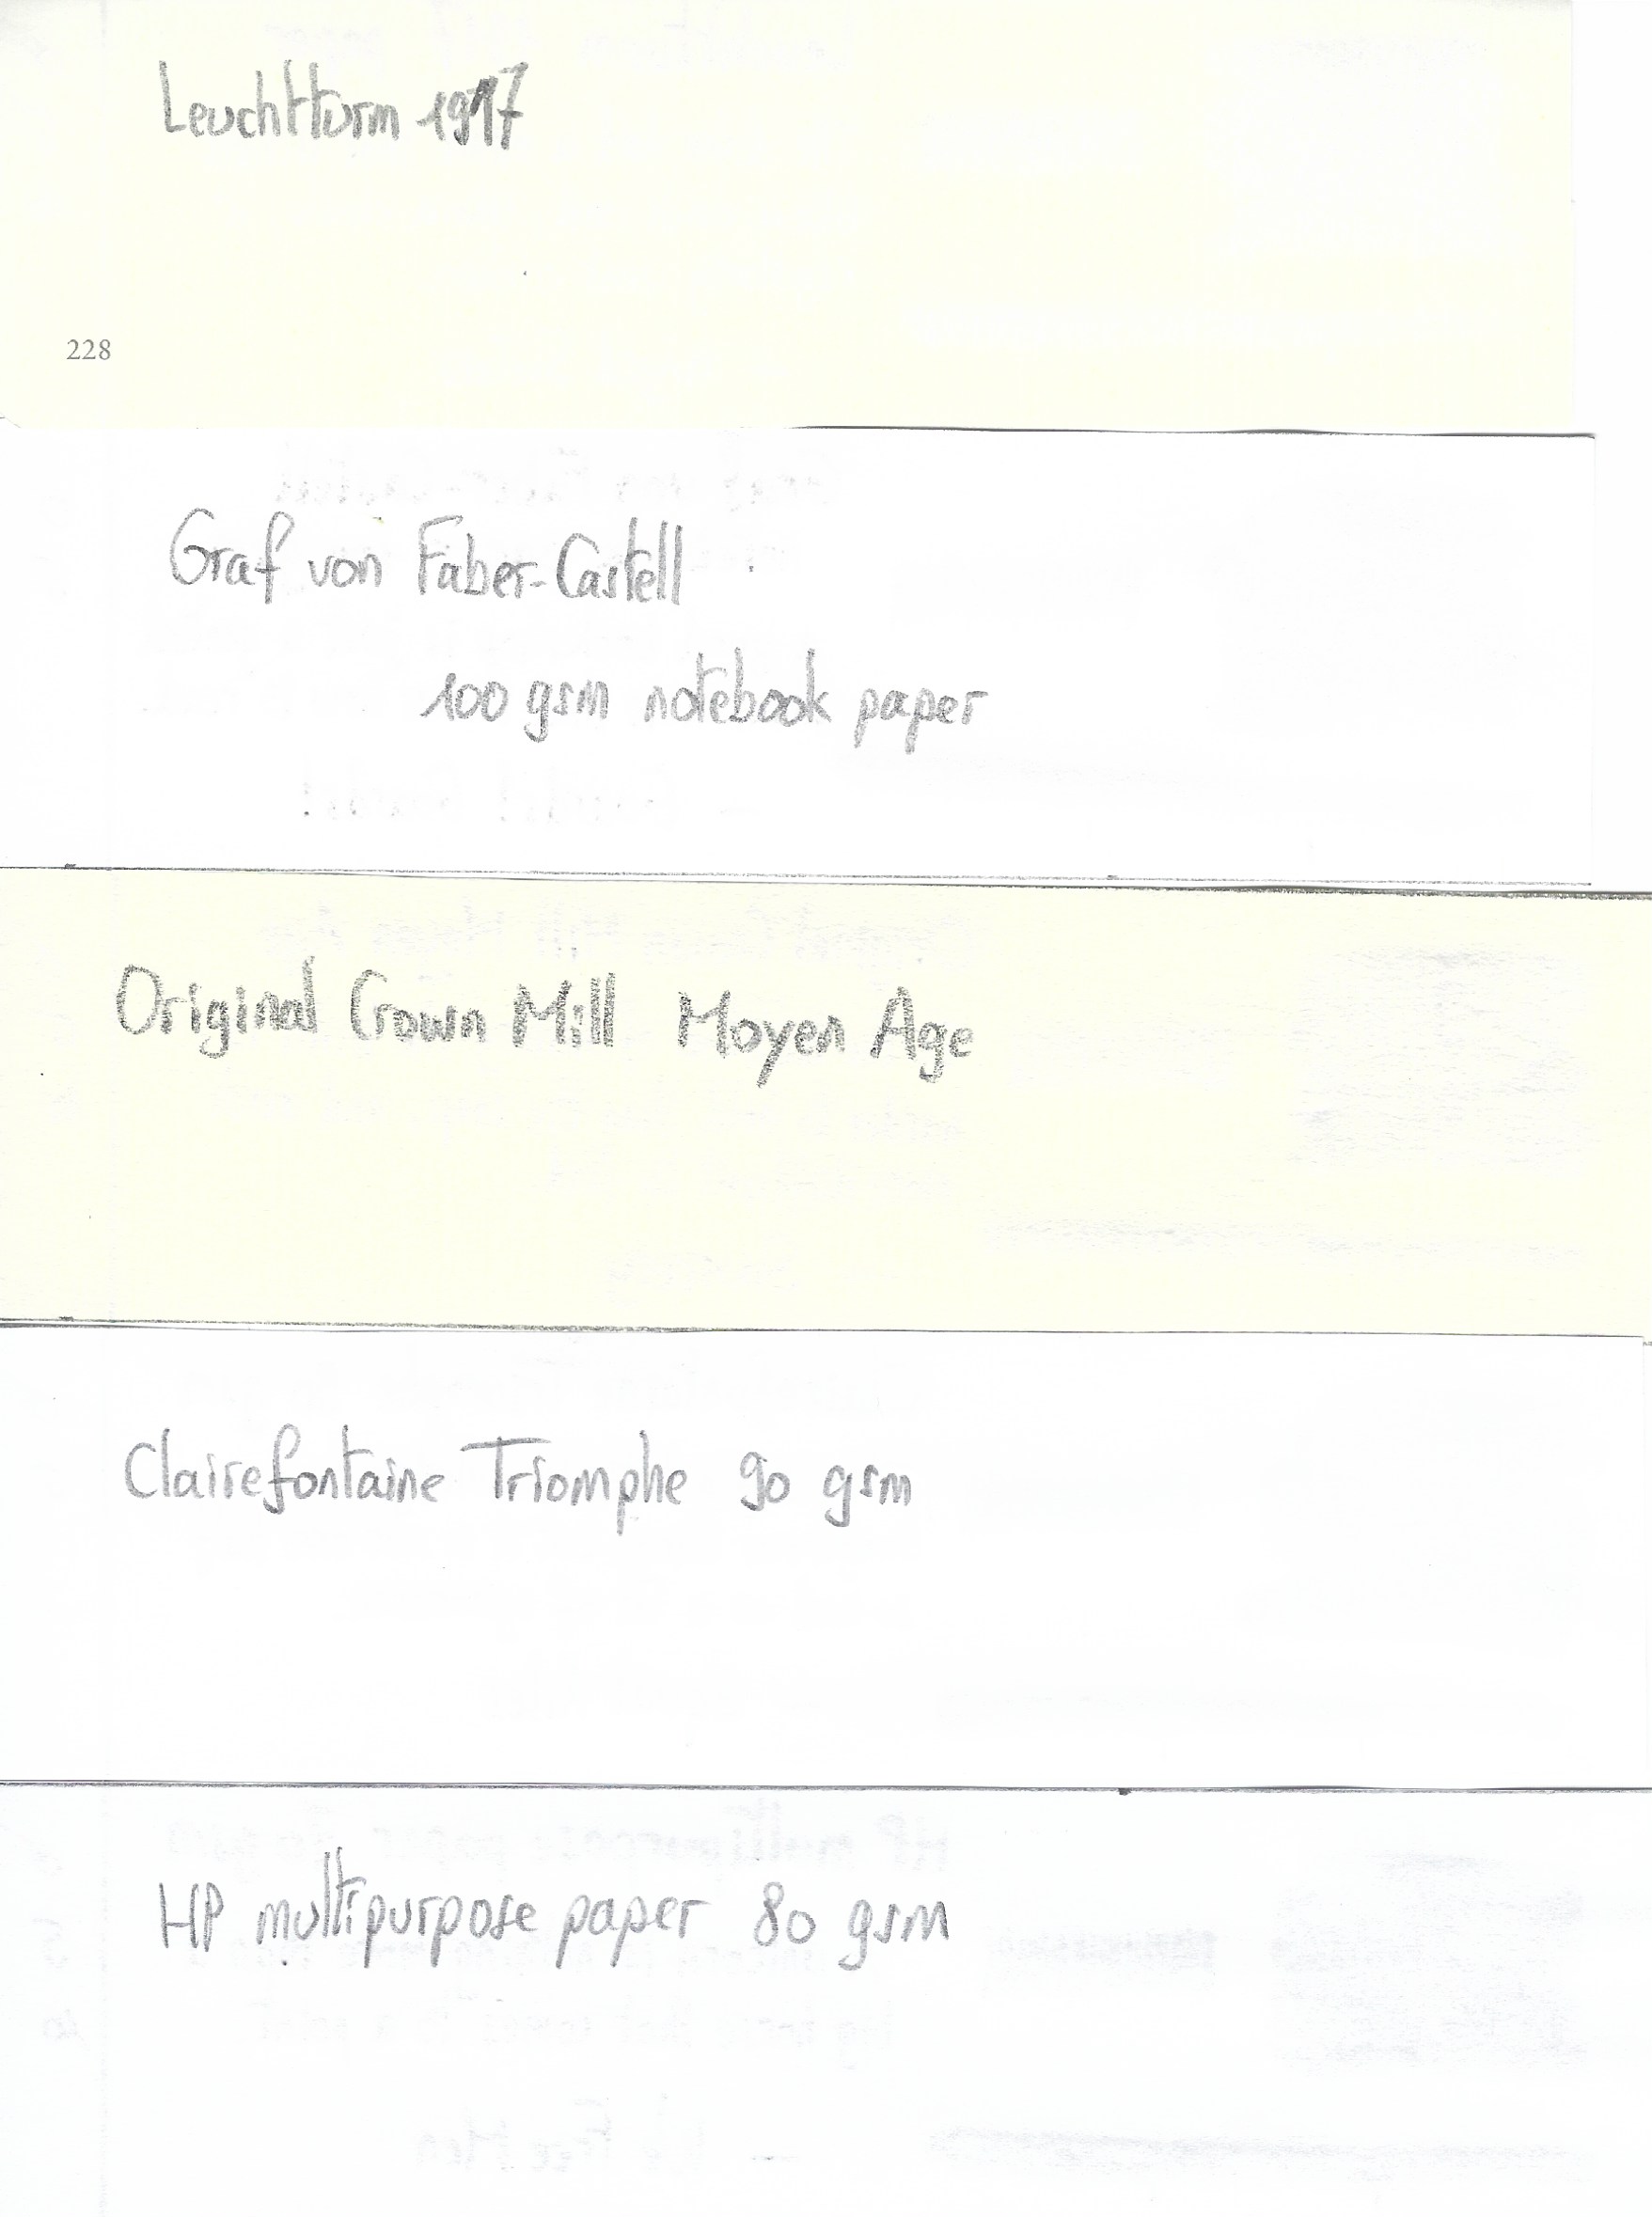 Leuchtturm 1917
228
Graf von Faber-Castell
100 gsm notebook paper
Original Crown Mill Moyen Age
Clairefontaine Triomphe 90 gsm
HP multipurpose paper 80 gsm